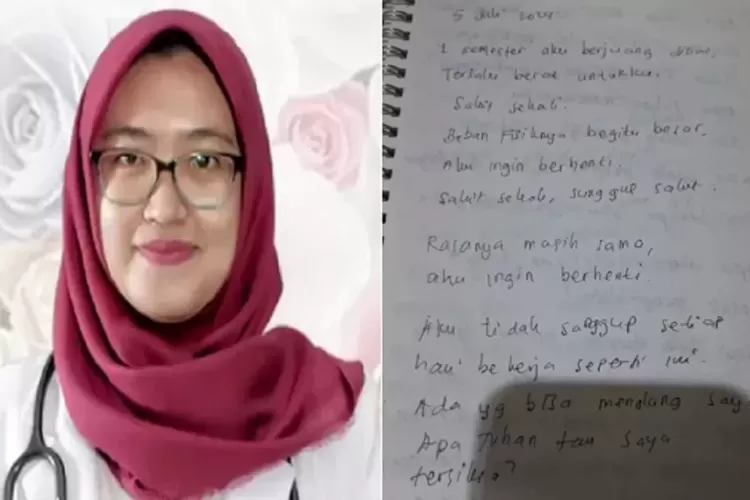 5 Juli
1 semester aku berjuang disini,
Terlalu berat untukku.
Sakit sekali.
Beban Fisiknya begitu besar.
Aku ingin berhenti.
Sakit sekali, sungguh sakit.
Rasanya masih sama,
aku ingin berhenti.
Aku tidak sanggup setiap
hari bekerja seperti ini.
Ada yg bisa menolong saya
Apa Tuhan tau saya
tersiksa?